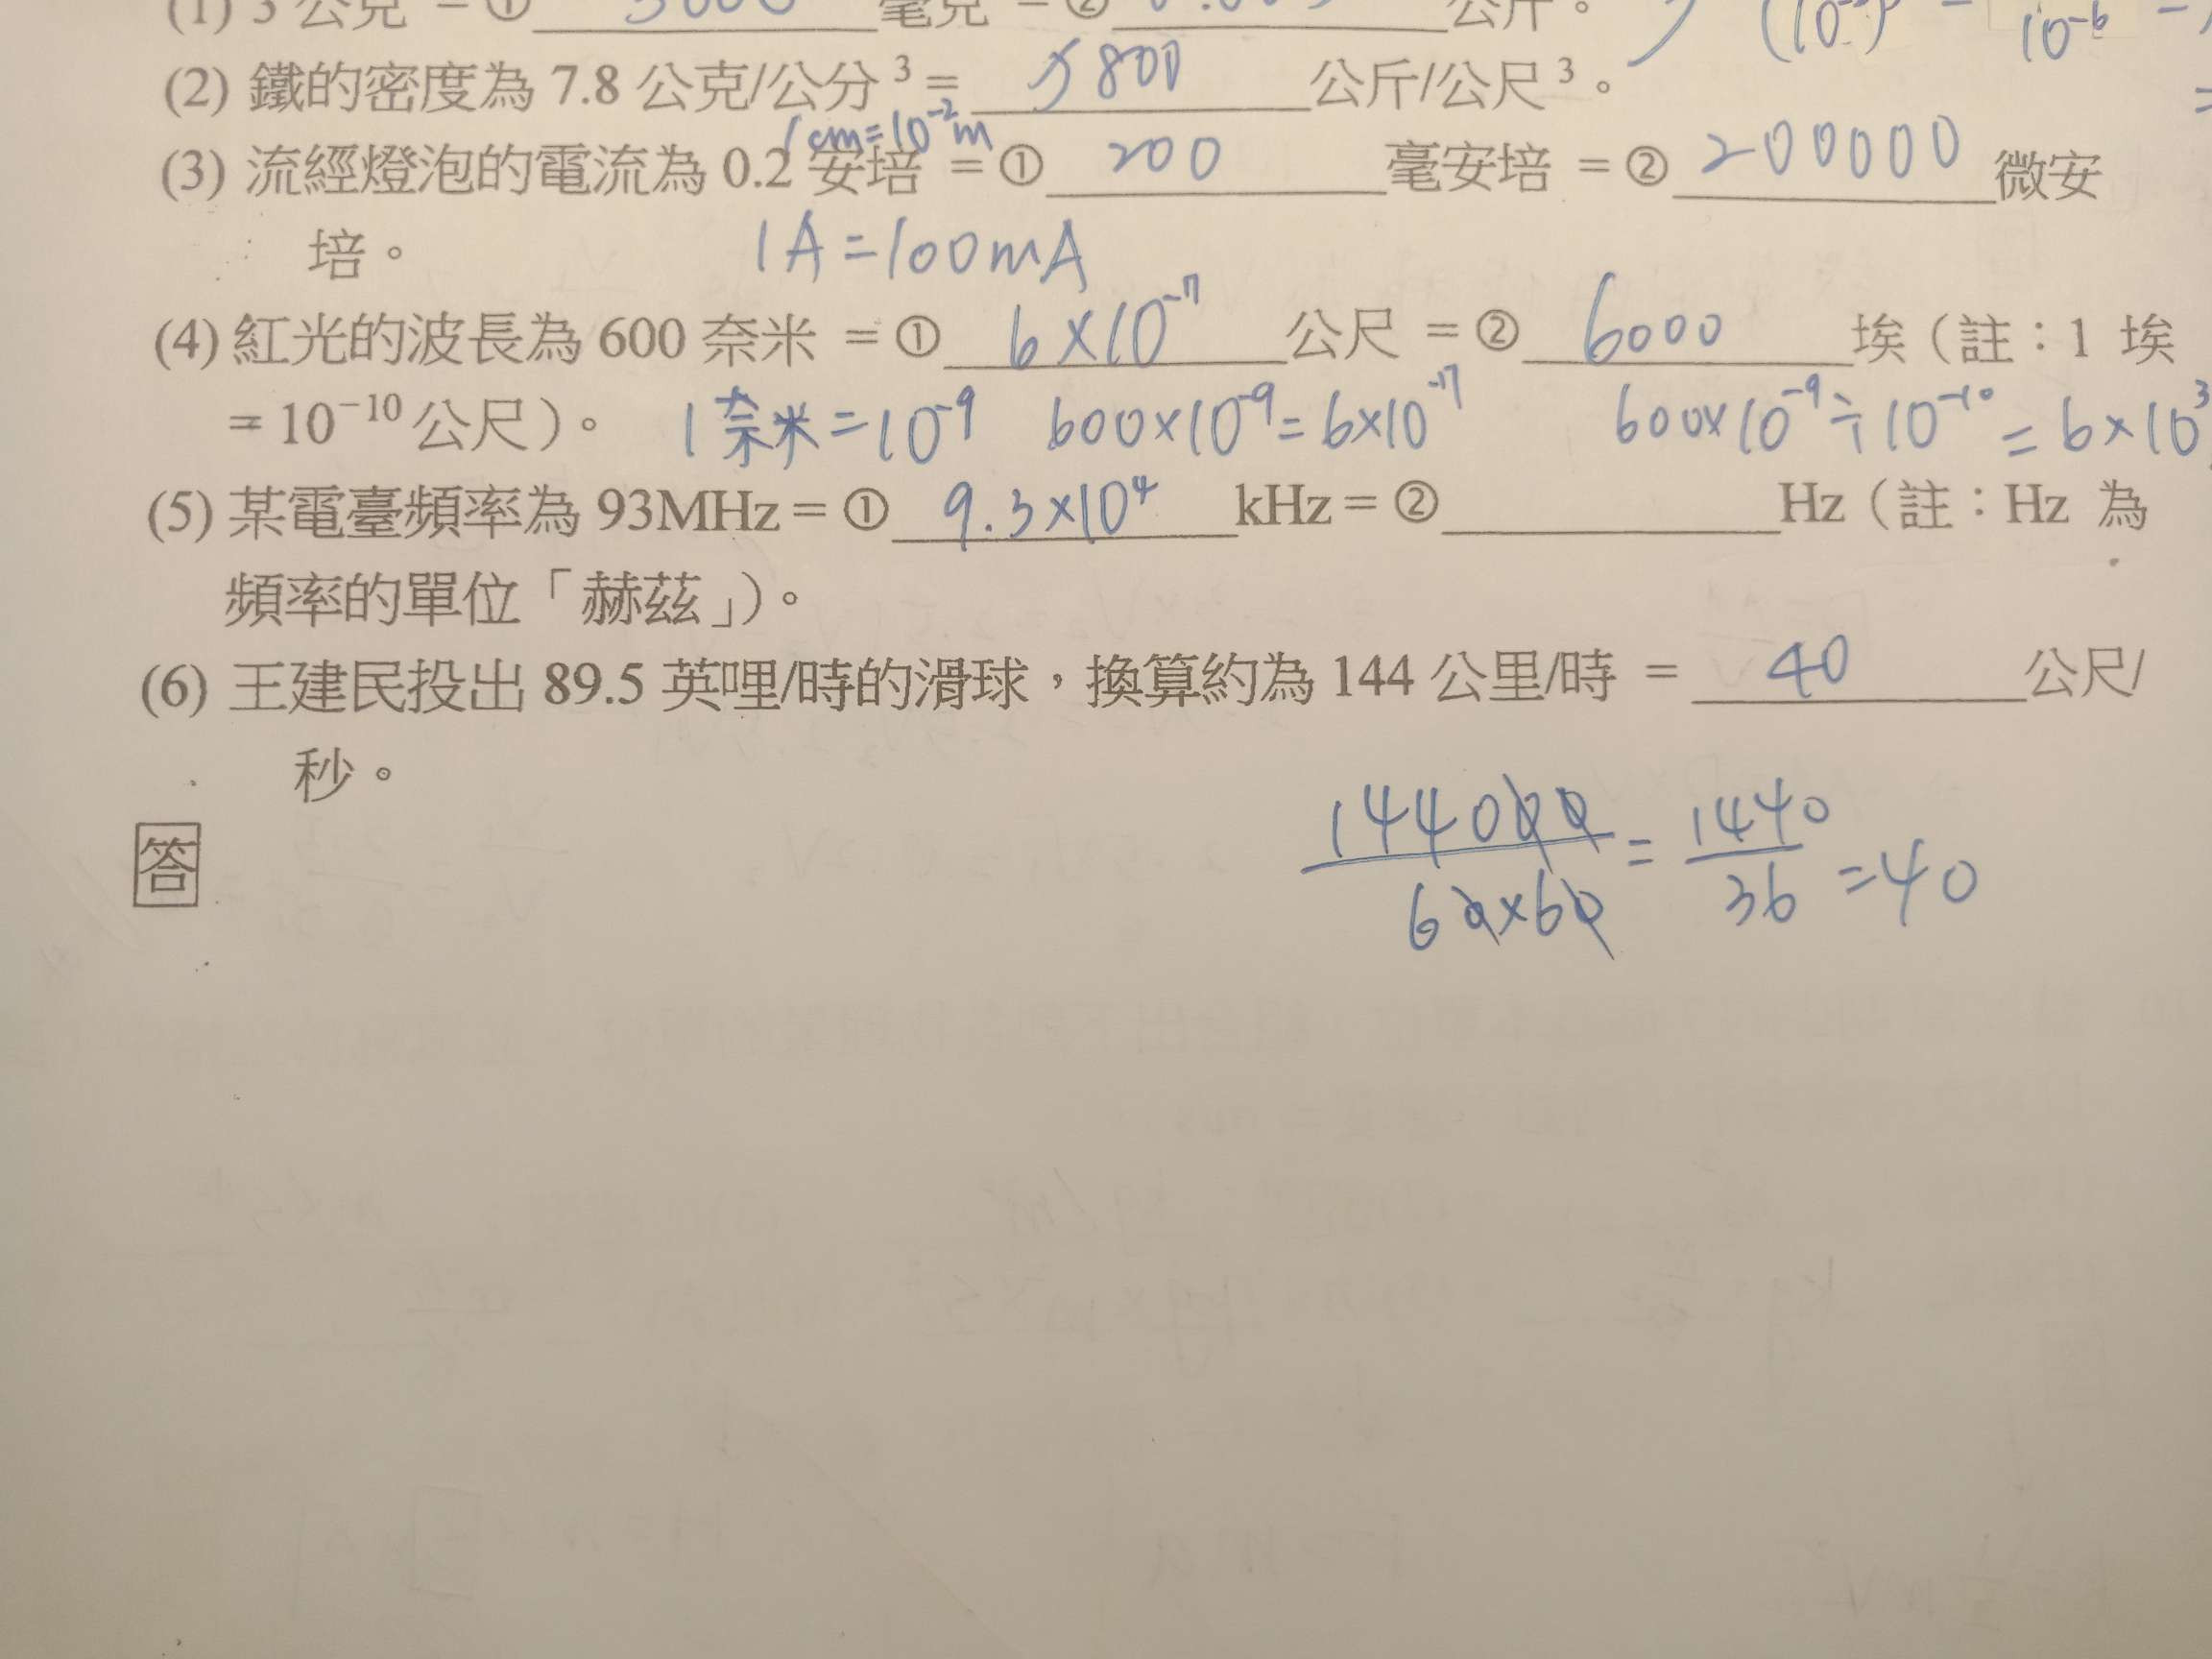 (1) 3 公克 = ① 3000 毫克 = ② 公斤。
(2) 鐵的密度為 7.8 公克/公分³ = 7800 公斤/公尺³。
10⁻⁶
1cm=10⁻²m
(3) 流經燈泡的電流為 0.2 安培 = ① 200 毫安培 = ② 200000 微安
培。
1A=100mA
(4) 紅光的波長為 600 奈米 = ① 6×10⁻⁷ 公尺 = ② 6000 埃（註：1 埃
= 10⁻¹⁰ 公尺）。 1奈米=10⁻⁹ 600×10⁻⁹=6×10⁻⁷ 600×10⁻⁹÷10⁻¹⁰=6×10³
(5) 某電臺頻率為 93MHz = ① 9.3×10⁴ kHz = ② Hz（註：Hz 為
頻率的單位「赫茲」）。
(6) 王建民投出 89.5 英哩/時的滑球，換算約為 144 公里/時 = 40 公尺/
秒。
144000/60×60 = 1440/36 =40
答